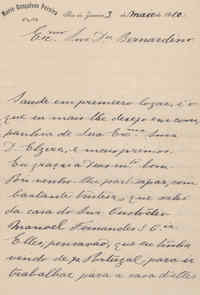 Mario Gonçalves Pereira
Rio de Janeiro 3 de Março de 1910.
Exmo Snr Bernardino
Saude em premeiro logar, é o
que eu mais lhe desejo em com
panhia de Sua Exma Snra
D. Elzira, e mais
Eu graças a Deus bom.
Snr venho lhe participar, com
bastante tristeza, que sahi
da casa do Snr Custodio
Manoel Fernandes & Cia
Elles, pensavão, que eu tinha
vindo de Portugal, para se
trabalhar para a casa d'elles